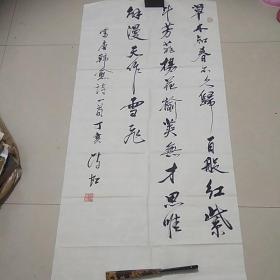 草木知春不久歸百般紅紫
斗芳菲楊花榆莢無才思惟
解漫天作雪飛
唐韓愈詩一首丁亥